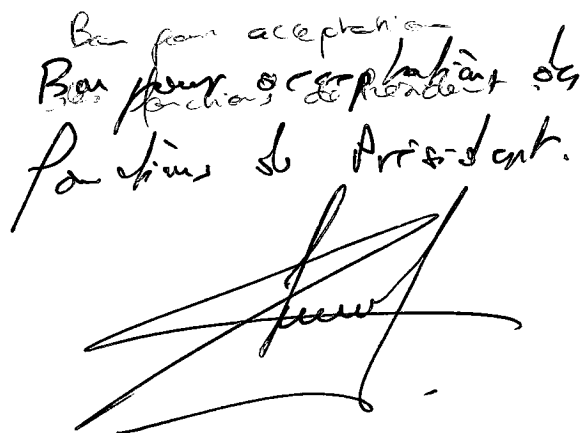 Bon pour acceptation
Bon pour acceptation des
fonctions de Président
fonctions de Président.